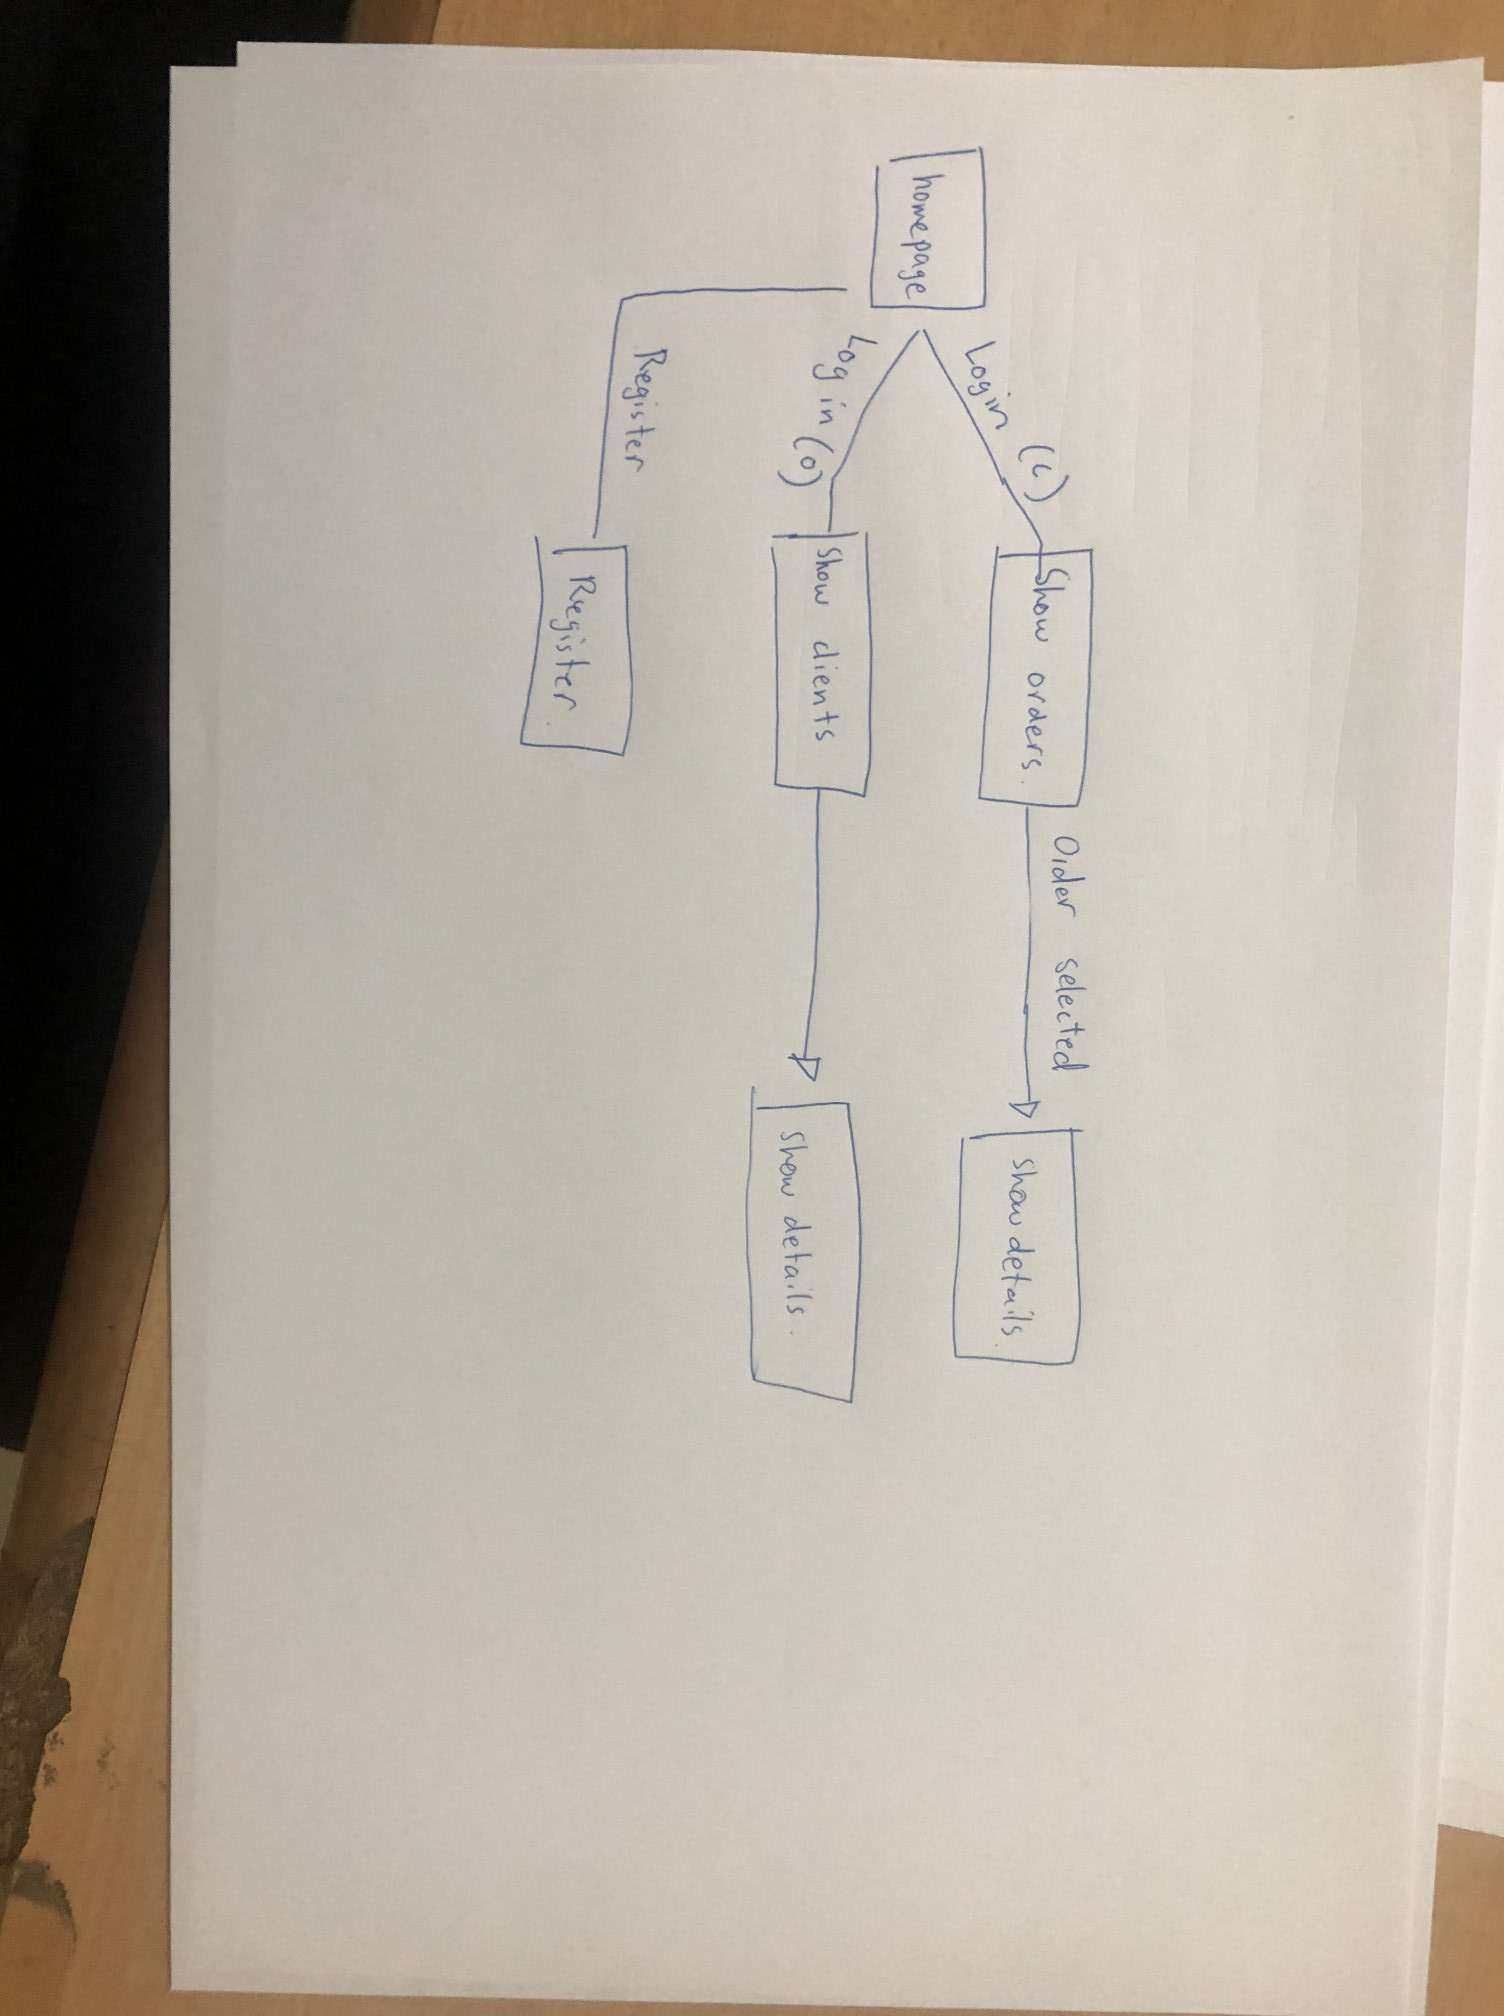 Login (C)
Show orders.
Order selected
Show details.
homepage
Log in (O)
Show clients
Show details.
Register
Register.